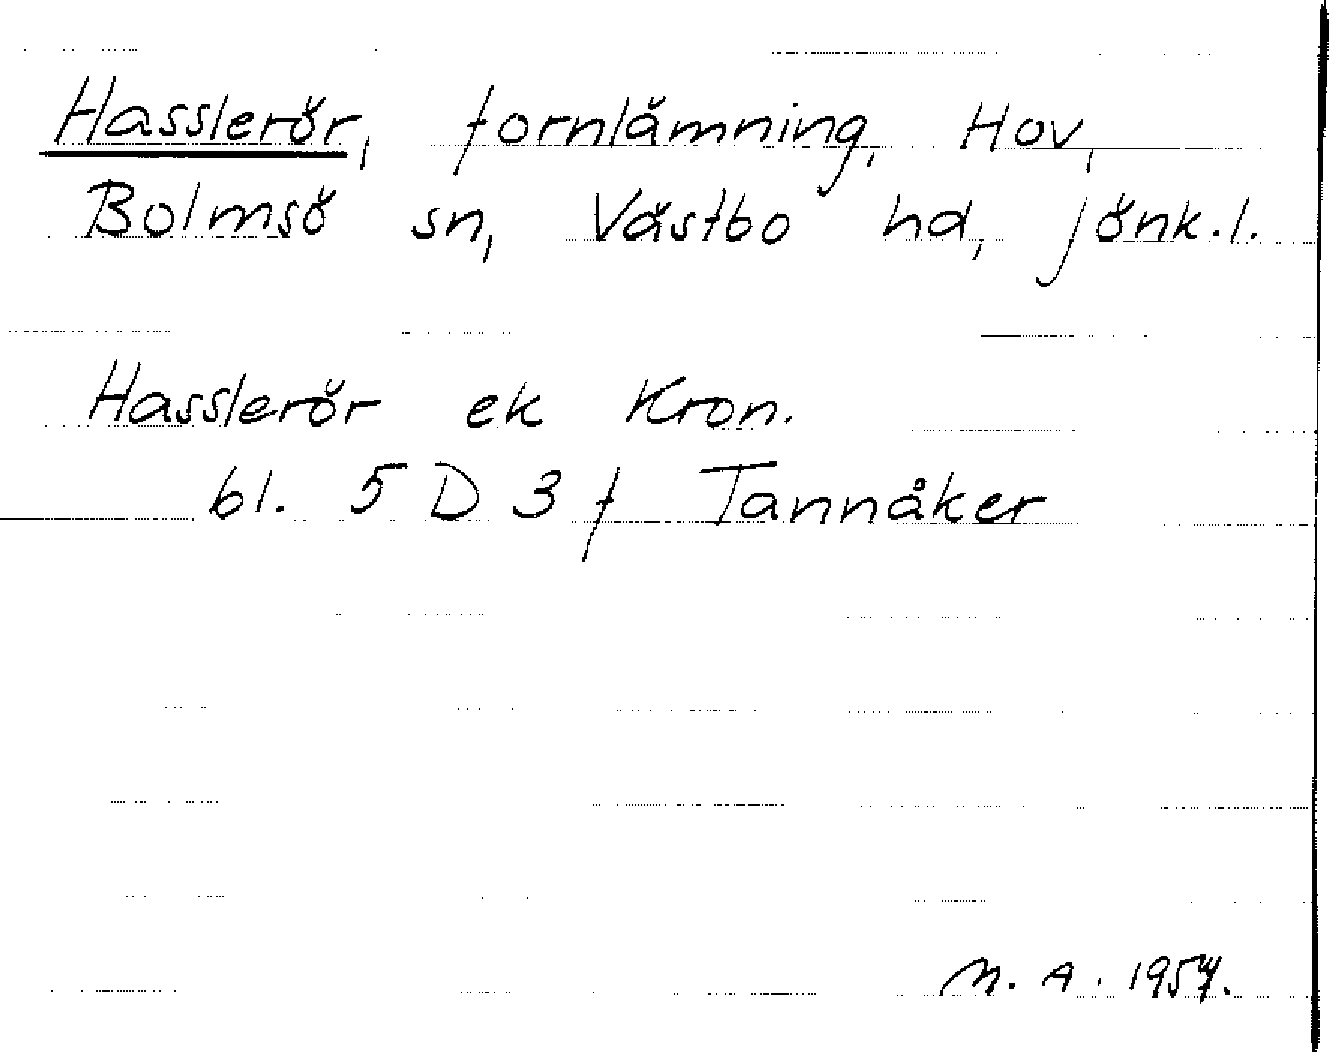 Hasslerör, fornlämning, Hov,
Bolmsö sn, Västbo hd, Jönk.l.
Hasslerör ek Kron.
bl. 5 D 3 f Tannåker
M. A. 1957.